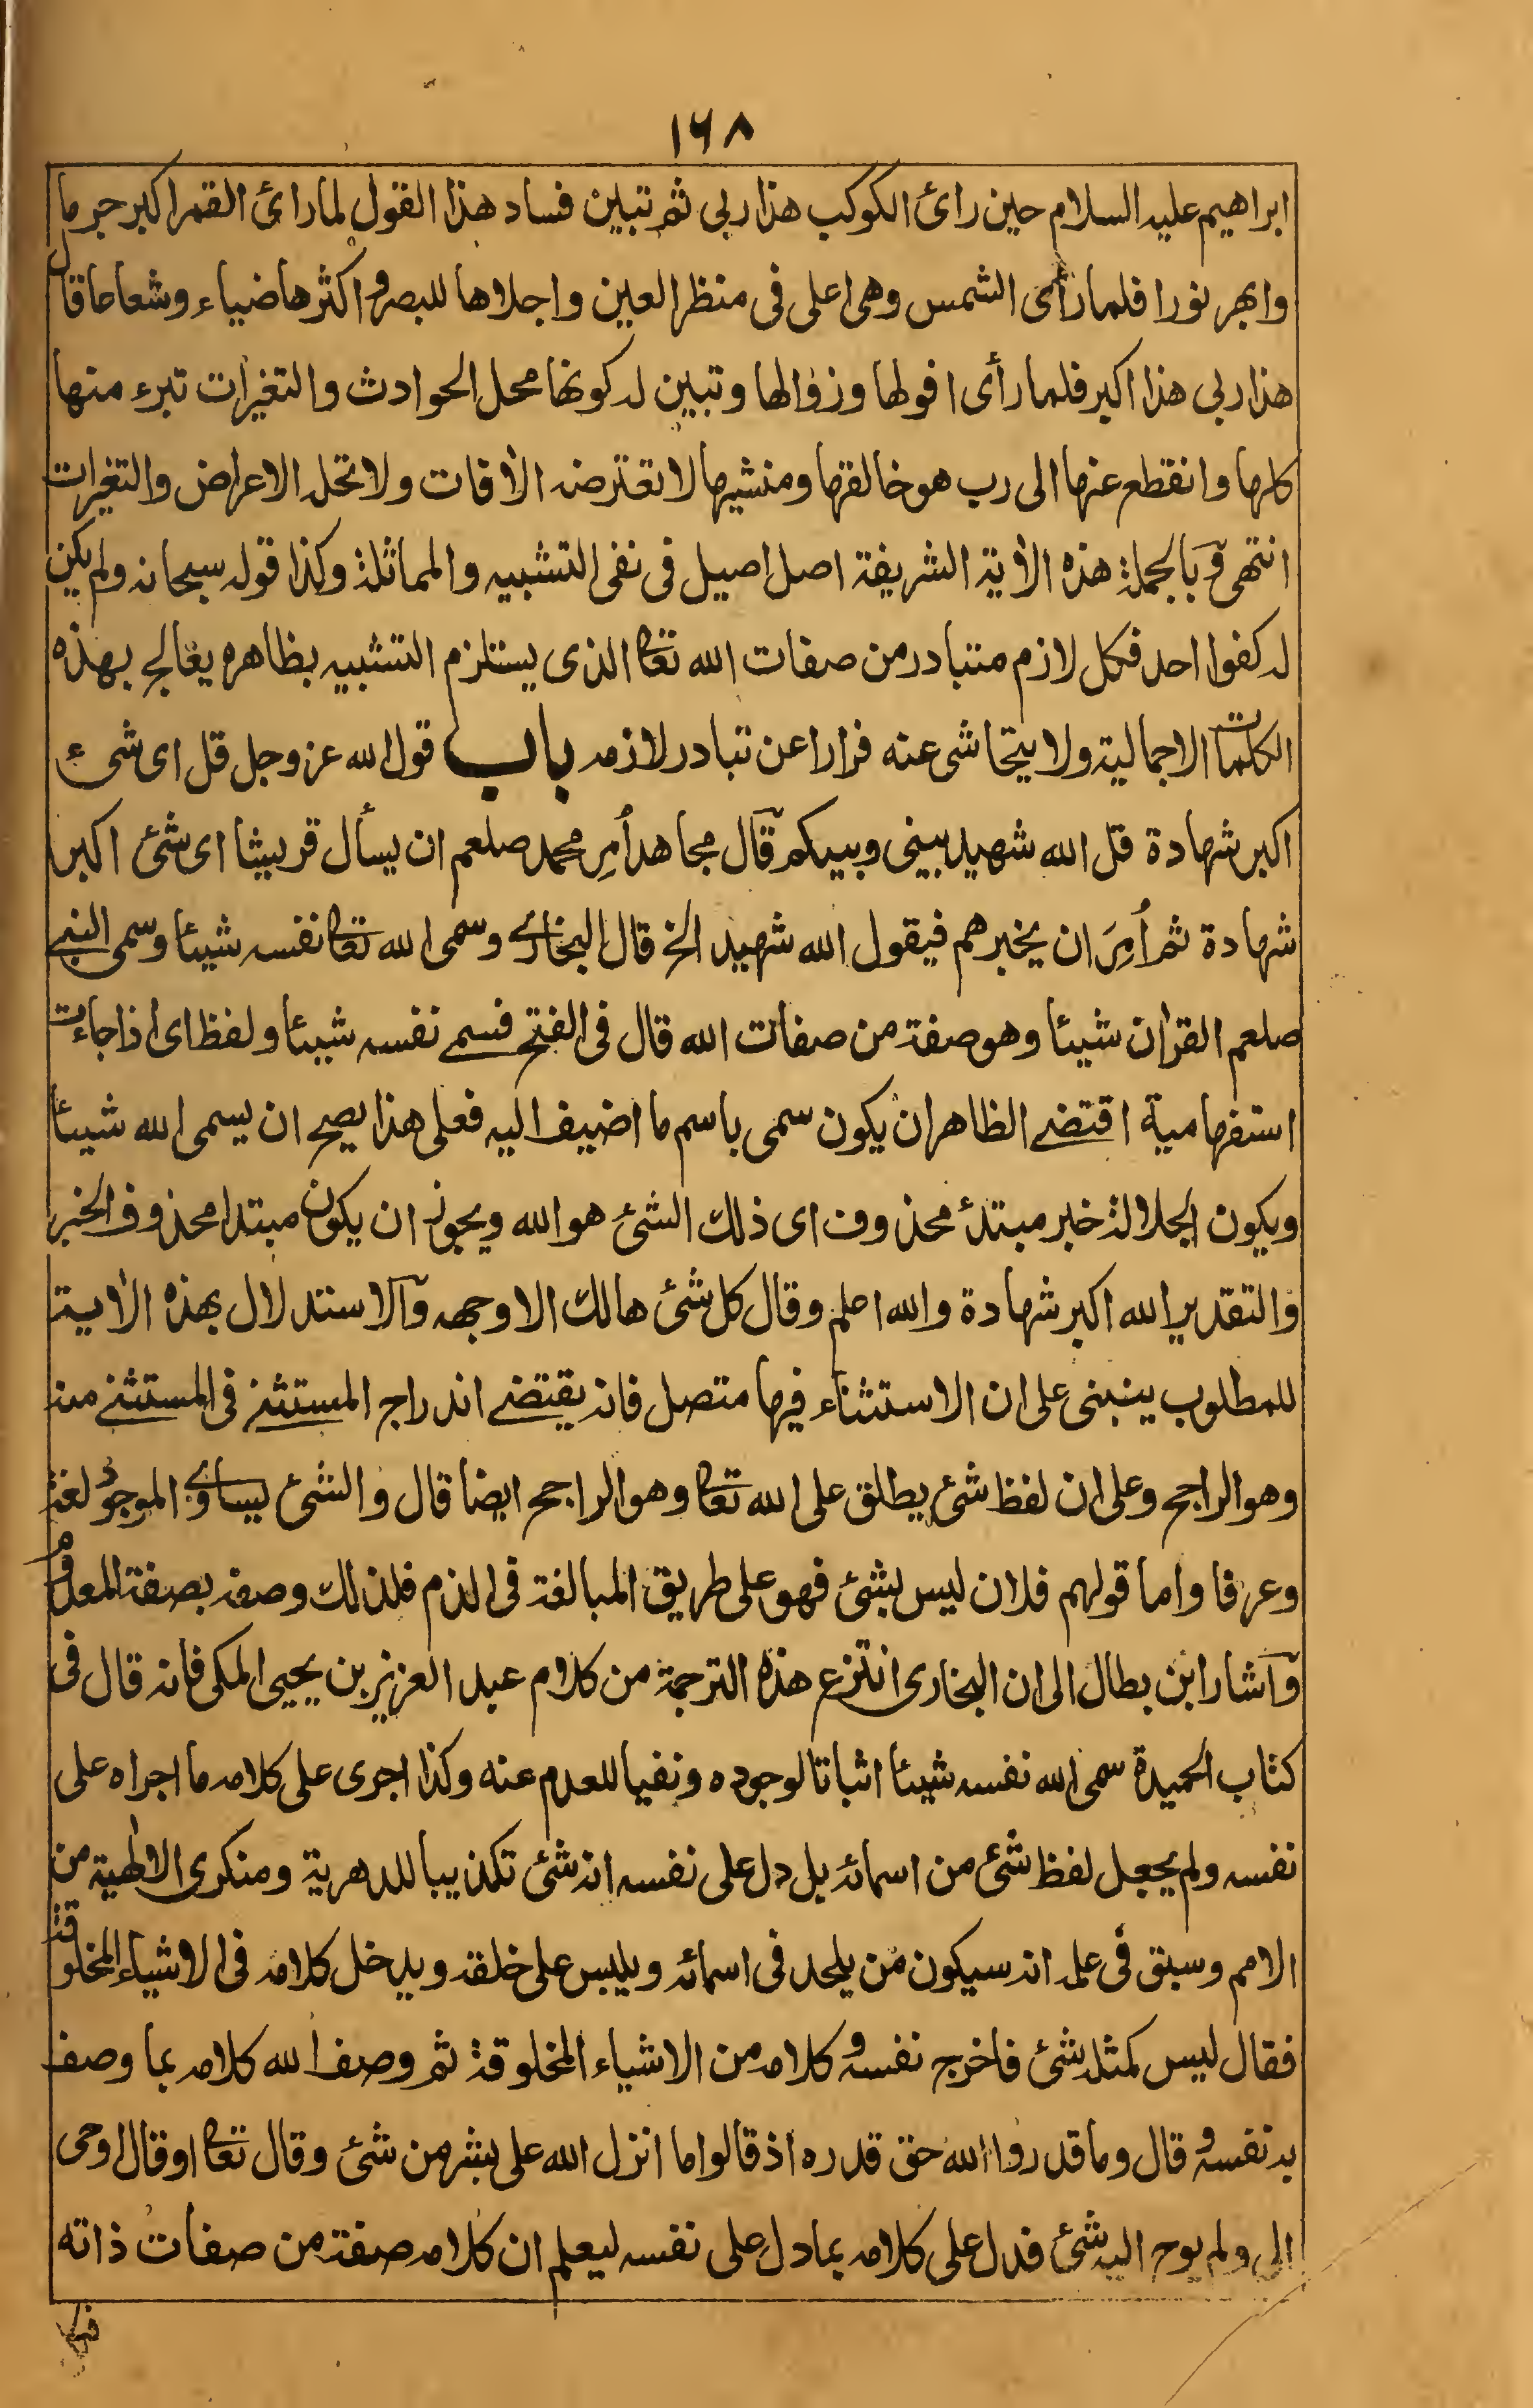 ١٦٨
ابراهيم عليه السلام حين رائ الكوكب هذا ربى ثم تبين فساد هذا القول لما رائ القمر اكبر جرما
وابهر نورا فلما رأى الشمس وهى اعلى فى منظر العين واجلاها للبصر واكثرها ضياء وشعاعا قال
هذا ربى هذا اكبر فلما رأى افولها وزوالها وتبين له كونها محل الحوادث والتغيرات تبرء منها
كلها وانقطع عنها الى رب هو خالقها ومنشيها لا تعترضه الأفات ولا تحله الاعراض والتغيرات
انتهى وبالجملة هذه الأية الشريفة اصل اصيل فى نفى التشبيه والمماثلة وكذا قوله سبحانه ولم يكن
له كفوا احد فكل لازم متبادر من صفات الله تعا الذى يستلزم التشبيه بظاهره يعالج بهذه
الكلمات الاجمالية ولا يتحاشى عنه فرارا عن تبادر لازمه باب قول الله عز وجل قل اى شئ
اكبر شهادة قل الله شهيد بينى وبينكم قال مجاهد أُمِر محمد صلعم ان يسأل قريشا اى شئ اكبر
شهادة ثم أُمِرَ ان يخبرهم فيقول الله شهيد الخ قال البخارى وسمى الله تعا نفسه شيئا وسمى النبى
صلعم القرأن شيئا وهو صفة من صفات الله قال فى الفتح فسمى نفسه شيئا ولفظ اى اذا جاءت
استفهامية اقتضى الظاهر ان يكون سمى باسم ما اضيف اليه فعلى هذا يصح ان يسمى الله شيئا
ويكون الجلالة خبر مبتدأ محذوف اى ذلك الشئ هو الله ويجوز ان يكون مبتدا محذوف الخبر
والتقدير الله اكبر شهادة والله اعلم وقال كل شئ هالك الا وجهه والاستدلال بهذه الأية
للمطلوب ينبنى على ان الاستثناء فيها متصل فانه يقتضى اندراج المستثنى فى المستثنى منه
وهو الراجح وعلى ان لفظ شئ يطلق على الله تعا وهو الراجح ايضا قال والشئ يساوى الموجود لغة
وعرفا واما قولهم فلان ليس بشئ فهو على طريق المبالغة فى الذم فلذلك وصفه بصفة المعدوم
واشار ابن بطال الى ان البخارى انتزع هذه الترجمة من كلام عبد العزيز بن يحيى المكى فانه قال فى
كتاب الحميدة سمى الله نفسه شيئا اثباتا لوجوده ونفيا للعدم عنه وكذا اجرى على كلامه ما اجراه على
نفسه ولم يجعل لفظ شئ من اسمائه بل دل على نفسه انه شئ تكذيبا للدهرية ومنكرى الالهية من
الامم وسبق فى علمه انه سيكون من يلحد فى اسمائه ويلبس على خلقه ويدخل كلامه فى الاشياء المخلوقة
فقال ليس كمثله شئ فاخرج نفسه وكلامه من الاشياء المخلوقة ثم وصف الله كلامه بما وصف
به نفسه وقال وما قدروا الله حق قدره اذ قالوا ما انزل الله على بشر من شئ وقال تعا او قال اوحى
الى ولم يوح اليه شئ فدل على كلامه بما دل على نفسه ليعلم ان كلامه صفة من صفات ذاته